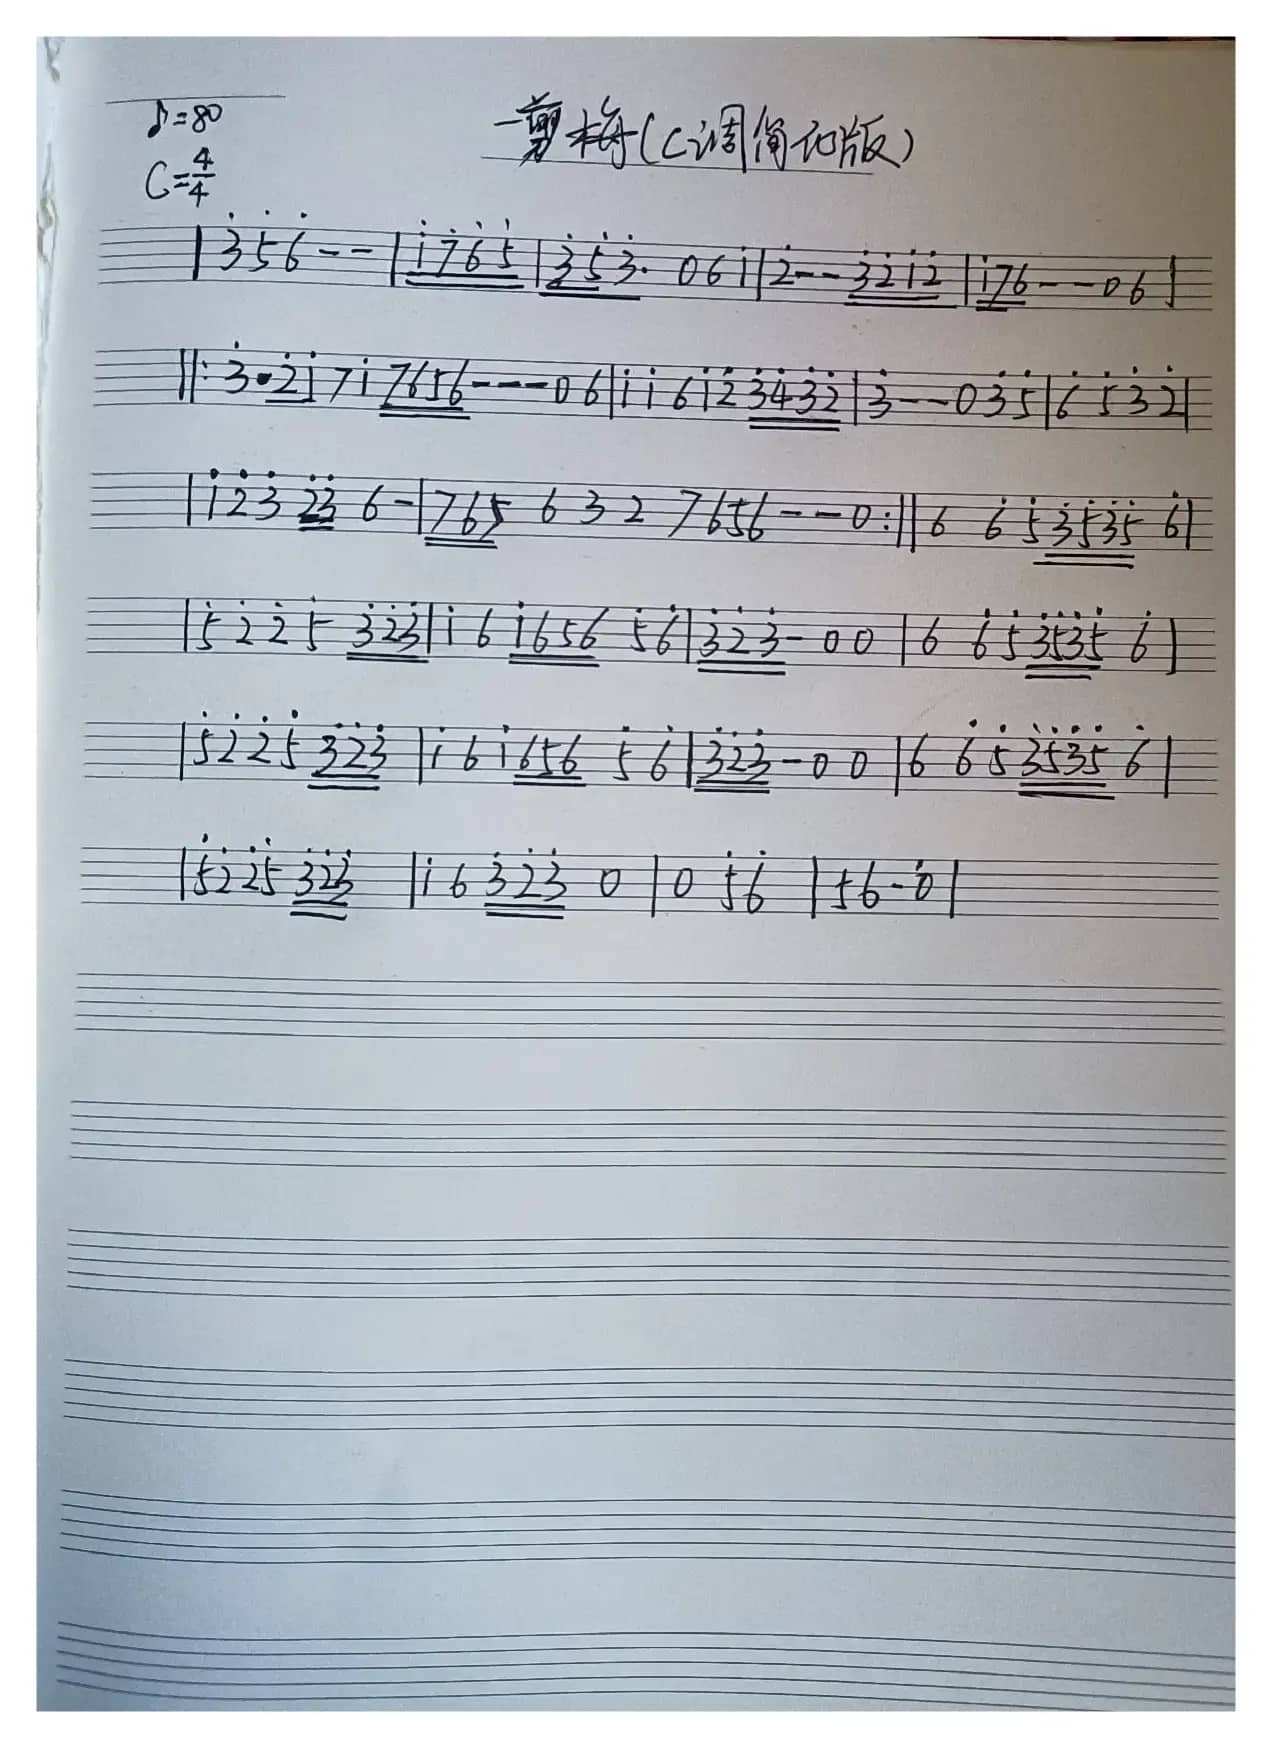 ♪=80
一剪梅(C调简记版)
C=4/4
|3̇5̇6̇--|i̇7̇6̇5̇|3̇5̇3̇· 06i̇|2̇--3̇2̇i̇2̇|i̇76--06|
‖:3̇·2̇i̇7i̇7656---06|i̇i̇6i̇2̇3̇4̇3̇2̇|3̇--03̇5̇|6̇5̇3̇2̇|
|i̇2̇3̇ 2̇3̇ 6-|765 6 3 2 7656---0:‖6 6 5̇3̇5̇3̇5̇ 6̇|
|5̇2̇2̇5̇ 3̇2̇3̇|i̇ 6 i̇656 5̇6̇|3̇2̇3̇-00|6 6̇5̇3̇5̇3̇5̇ 6̇|
|5̇2̇2̇5̇ 3̇2̇3̇|i̇6i̇656 5̇6̇|3̇2̇3̇-00|6 6̇5̇3̇5̇3̇5̇6̇|
|5̇2̇2̇5̇ 3̇2̇3̇ |i̇6 3̇2̇3̇ 0|0 5̇6̇ |56-0̇|